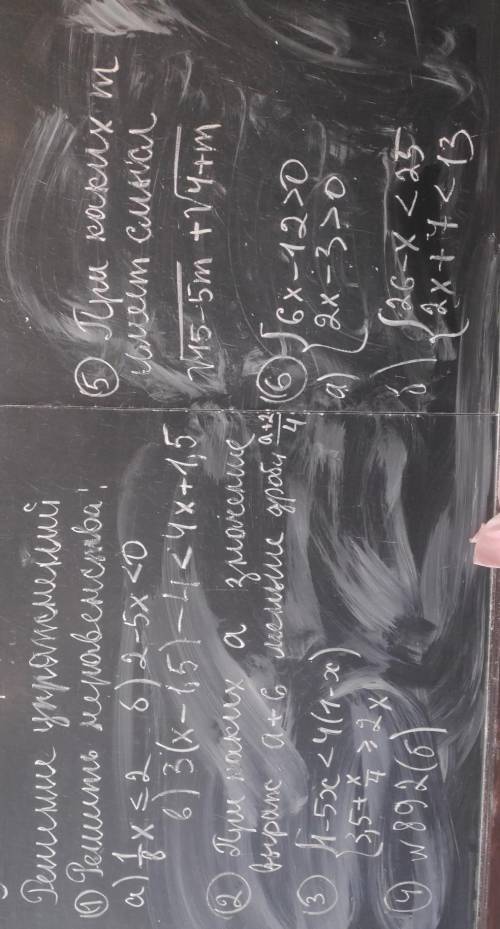 Решение упражнений
① Решить неравенства:
а) 1/8 x ≤ 2 б) 2-5x<0
в) 3(x-1,5)-4<4x+1,5
② При каких а значение
выраж а+6 меньше дроби (а+2)/4
③ { 4-5x<4(1-x)
3,5+x/4≥2x
④ № 892(б)
⑤ При каких m
имеет смысл
√15-5m + √4+m
⑥
а) { 6x-12>0
2x-3>0
б) { 26-x<25
2x+7<13